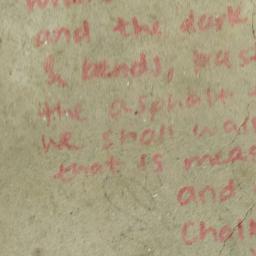 and the dark
& bends, pas
the asphalt
we shall wal
that is meas
and
Chalk